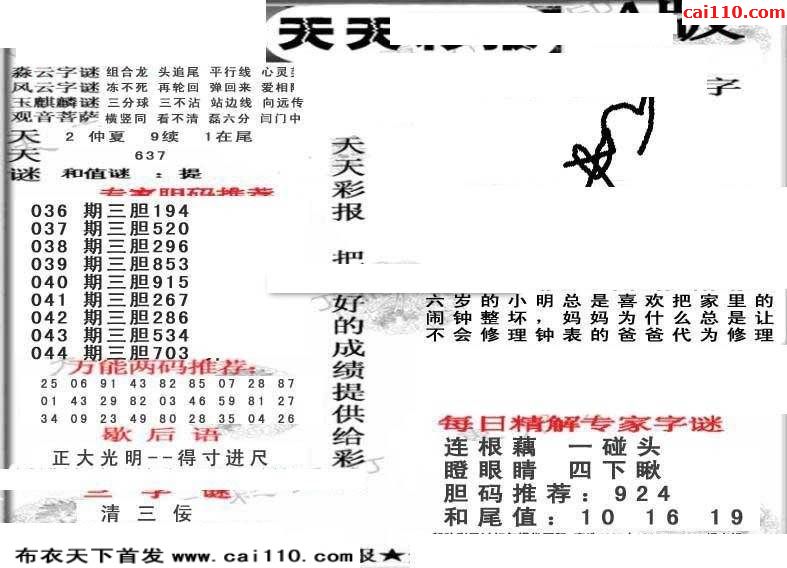 cai110.com
天天
字
淼云字谜 组合龙 头追尾 平行线
风云字谜 冻不死 再轮回 弹回来
玉麒麟谜 三分球 三不沾 站边线 向远传
观音菩萨 横竖同 看不清 磊六分 闫门中
天 2 仲夏 9续 1在尾
天 637
谜 和值谜 : 提
专家胆码推荐
036 期三胆194
037 期三胆520
038 期三胆296
039 期三胆853
040 期三胆915
041 期三胆267
042 期三胆286
043 期三胆534
044 期三胆703 ..
万能两码推荐:
25 06 91 43 82 85 07 28 87
01 43 29 82 03 46 59 81 27
34 09 23 49 80 28 35 04 26
歇后语
正大光明--得寸进尺
三字谜
清三佞
天天彩报 把
好的成绩提供给彩
六岁的小明总是喜欢把家里的
闹钟整坏，妈妈为什么总是让
不会修理钟表的爸爸代为修理
每日精解专家字谜
连根藕 一碰头
瞪眼睛 四下瞅
胆码推荐: 924
和尾值: 10 16 19
布衣天下首发 www.cai110.com